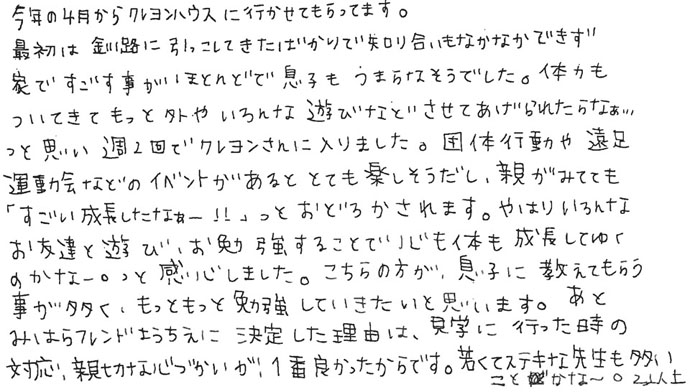 今年の4月からクレヨンハウスに行かせてもらってます。
最初は釧路に引っこしてきたばかりで知り合いもなかなかできず
家ですごす事がほとんどで息子もつまらなそうでした。体力も
ついてきてもっと外やいろんな遊びなどさせてあげられたらなぁ…
っと思い週2回でクレヨンさんに入りました。団体行動や遠足
運動会などのイベントがあるととても楽しそうだし、親がみてても
「すごい成長したなぁー!!」っとおどろかされます。やはりいろんな
お友達と遊び、お勉強することで心も体も成長してゆく
のかなー。っと感心しました。こちらの方が、息子に教えてもらう
事が多く、もっともっと勉強していきたいと思います。あと
みはらフレンドようちえんに決定した理由は、見学に行った時の
対応、親切な心づかいが、1番良かったからです。若くてステキな先生も多い
ことがかなー。以上